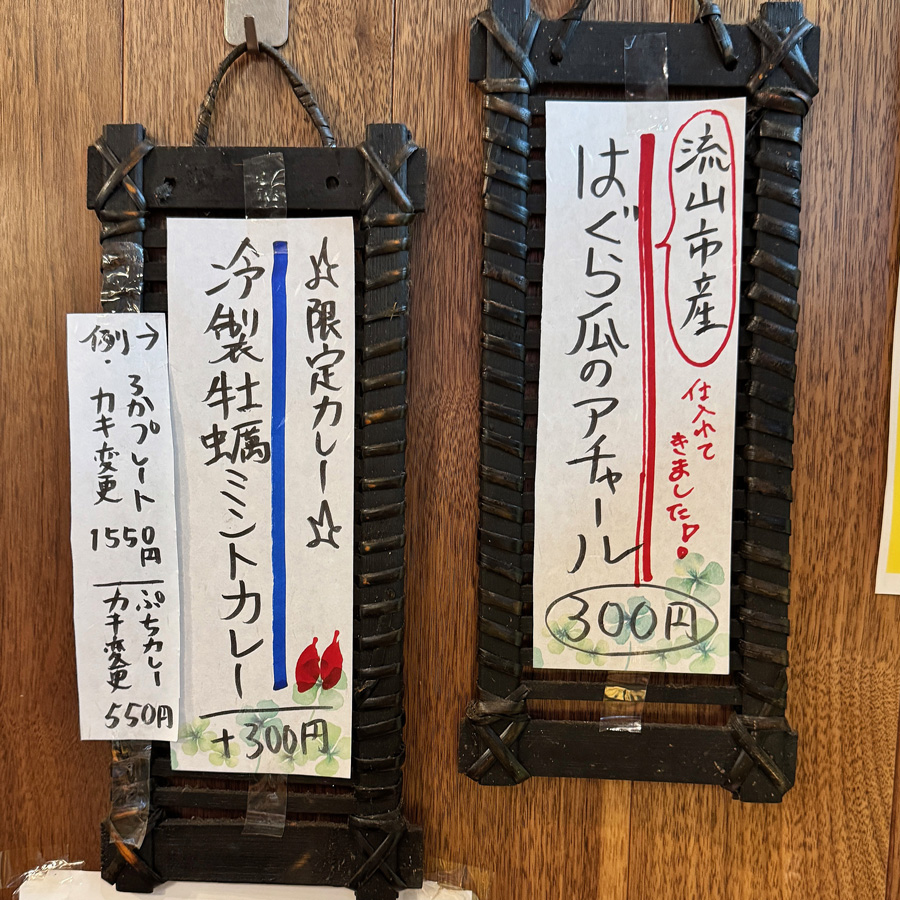 流山市産
仕入れて
きました!
はぐら瓜のアチャール
300円
☆限定カレー☆
冷製牡蠣ミントカレー
+300円
例→
ろかプレート
・カキ変更
1550円
ぷちカレー
カキ変更
550円